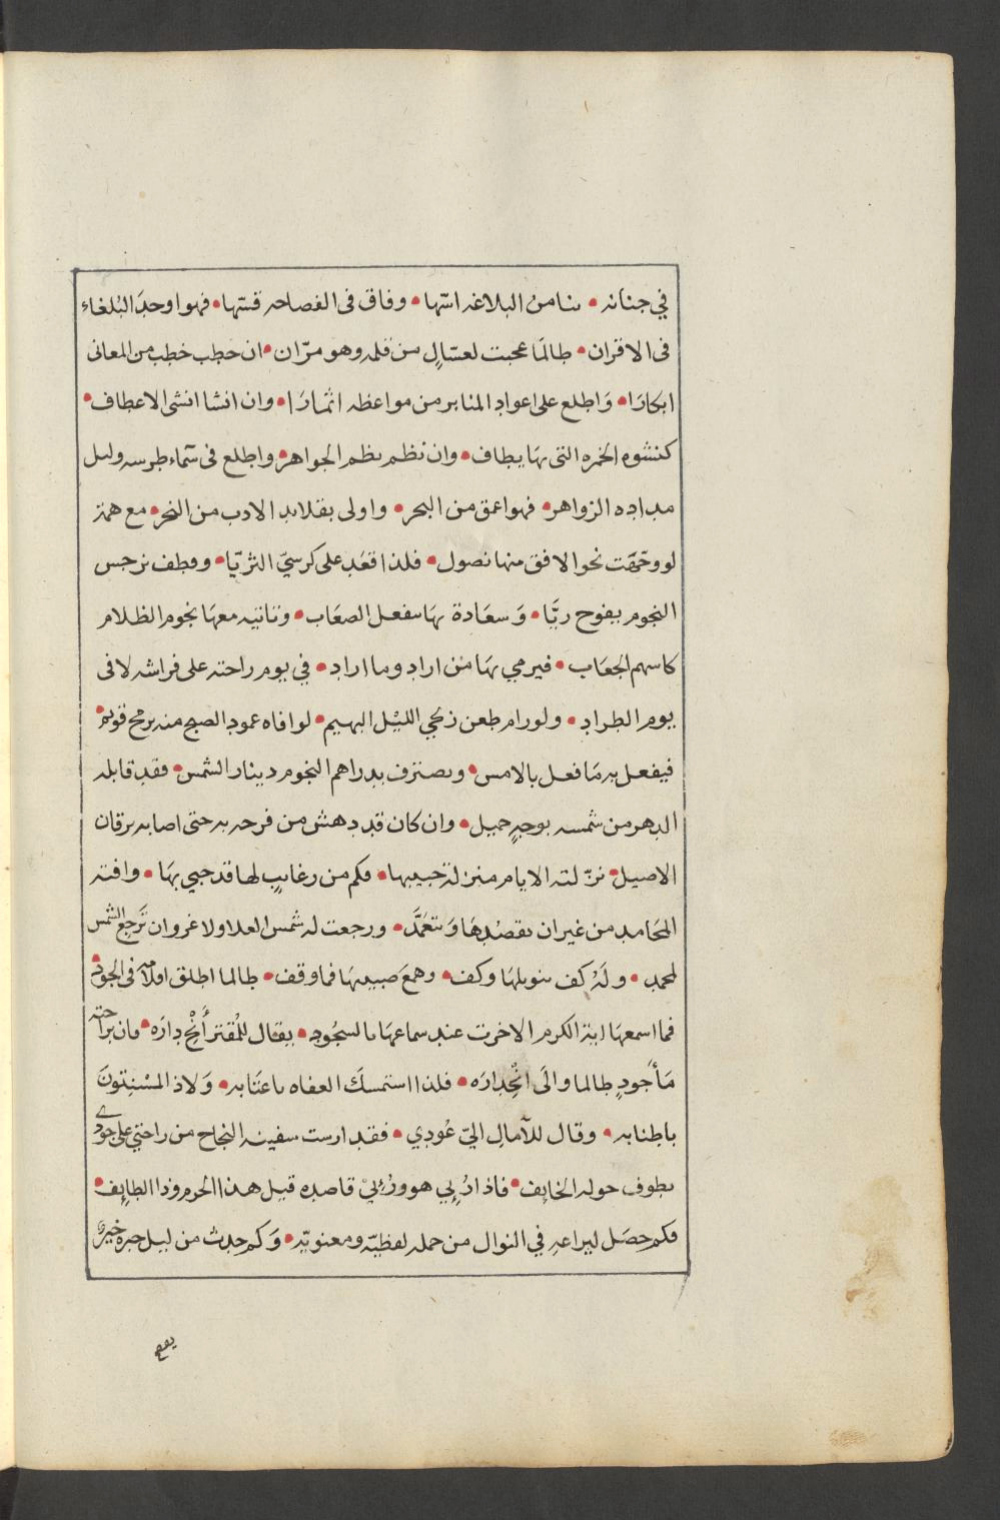 في جنانه • بنا من البلاغه اسّها • وفاق فى الفصاحه قسّها • فهو اوحد البلغاء
فى الاقران • طالما عجبت لعسّالٍ من قلمه وهو مرّان • ان خطب خطب من المعانى
ابكارًا • واطلع على اعواد المنابر من مواعظه اثمارًا • وان انشا انشى الاعطاف •
كنشوه الخمره التى بها يطاف • وان نظم نظم الجواهر • واطلع فى سماء طرسه وليل
مداده الزواهر • فهو اعمق من البحر • واولى بقلايد الادب من النحر • مع همة
لو وجّهت نحو الافق منها نصول • فلذا قعد على كرسيّ الثريّا • وقطف نرجس
النجوم يفوح ريّا • وسعادة بها سفعل الصعاب • وتاتيه معها نجوم الظلام
كاسهم الجعاب • فيرمي بها من اراد وما اراد • في يوم راحته على فراشه لا فى
يوم الطراد • ولو رام طعن زنجي الليل البهيم • لوافاه عمود الصبح منه برمح قويم •
فيفعل به ما فعل بالامس • ويصترف بدراهم النجوم دينار الشمس • فقد قابله
الدهر من شمسه بوجهٍ جميل • وان كان قد دهش من فرحه به حتى اصابه يرقان
الاصيل • نزّلته الايام منزلة حبيبها • فكم من رغايبٍ لها قد حبي بها • وافته
المحامد من غير ان يقصدها ويتعمّد • ورجعت له شمس العلا ولا غرو ان ترجع الشمس
لمحمد • وله كف بنويلها وكف • وهمع صيبها فما وقف • طالما اطلق اقلامه فى الجود •
فما اسمعها اية الكرم الا خرت عند سماعها بالسجود • يقال للمقتر أنْخ داره • فان براحته
مأجودٍ طالما والَى انْحداره • فلذا استمسك العفاه باعتابه • ولاذ المسنتون
باطنابه • وقال للآمال اليّ عُودي • فقد ارست سفينة النجاح من راحتي على جودي
يطوف حوله الخايف • فاذا رُئِي هو ورُئِي قاصده قيل هذا الحرم وذا الطايف •
فكم حصل ليراعه في النوال من جمله لفظيّه ومعنويّه • وكم حدث من ليل حبره خيريّ
يفع